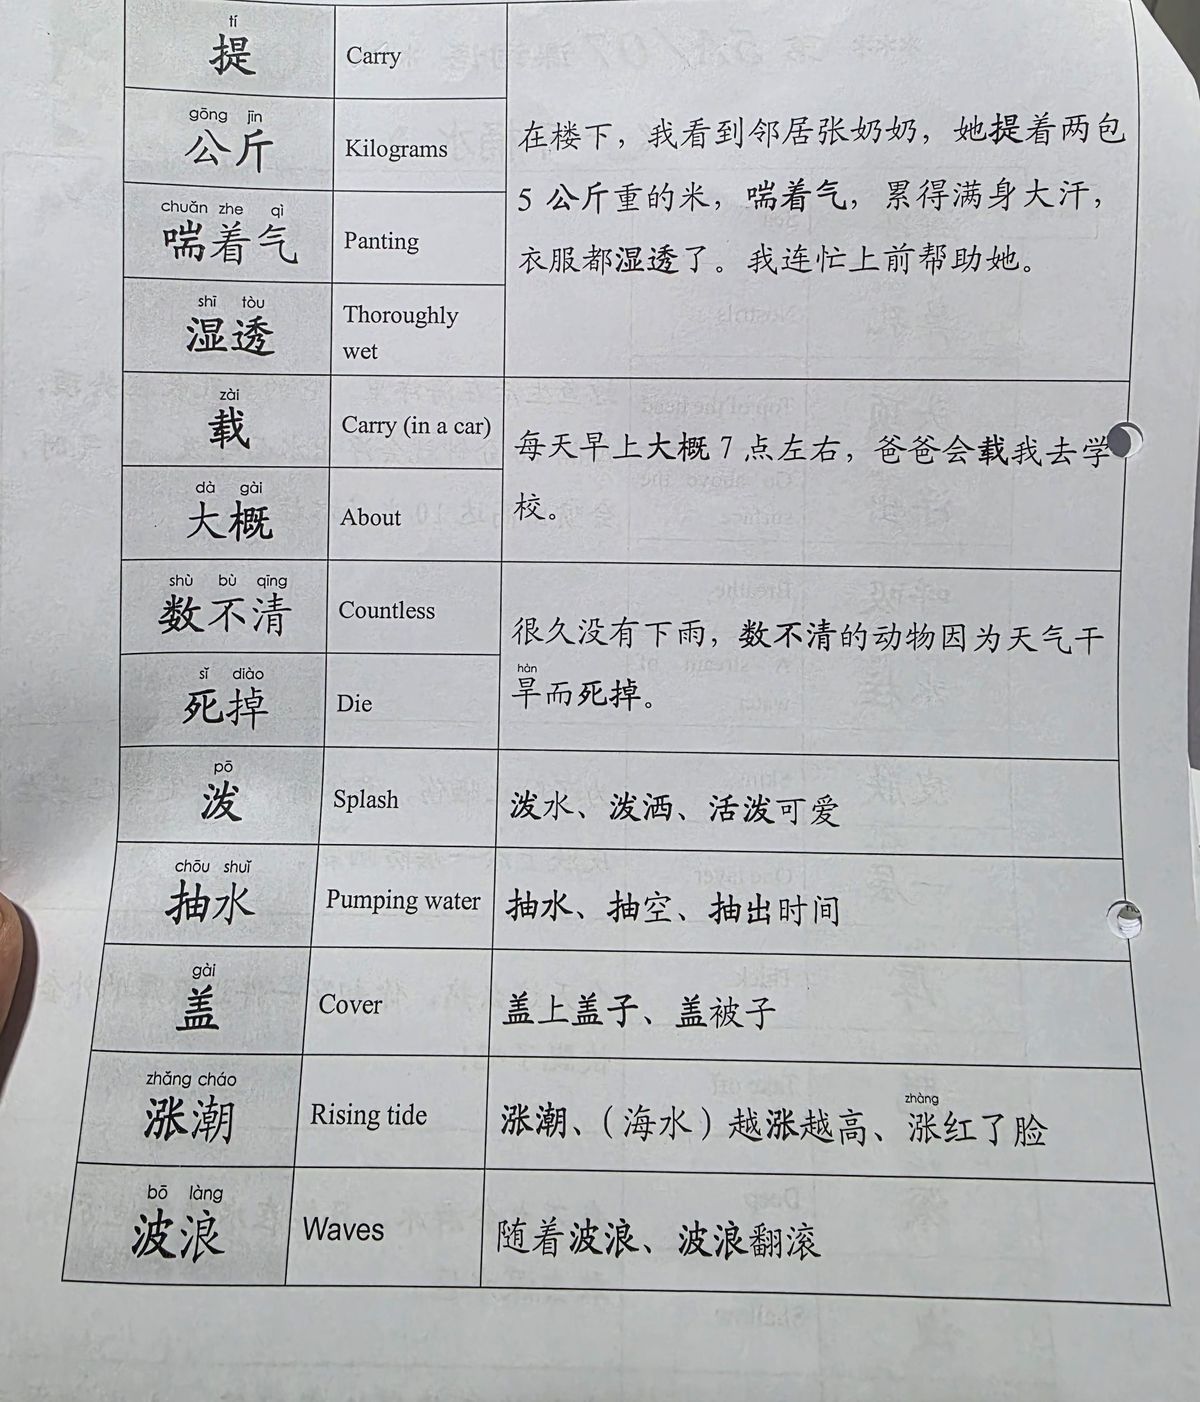 tí
提
Carry
gōng jīn
公斤
Kilograms
chuǎn zhe qì
喘着气
Panting
shī tòu
湿透
Thoroughly
wet
在楼下，我看到邻居张奶奶，她提着两包
5 公斤重的米，喘着气，累得满身大汗，
衣服都湿透了。我连忙上前帮助她。
zài
载
Carry (in a car)
dà gài
大概
About
每天早上大概 7 点左右，爸爸会载我去学
校。
shù bù qīng
数不清
Countless
sǐ diào
死掉
Die
很久没有下雨，数不清的动物因为天气干
hàn
旱而死掉。
pō
泼
Splash
泼水、泼洒、活泼可爱
chōu shuǐ
抽水
Pumping water
抽水、抽空、抽出时间
gài
盖
Cover
盖上盖子、盖被子
zhǎng cháo
涨潮
Rising tide
zhàng
涨潮、（海水）越涨越高、涨红了脸
bō làng
波浪
Waves
随着波浪、波浪翻滚